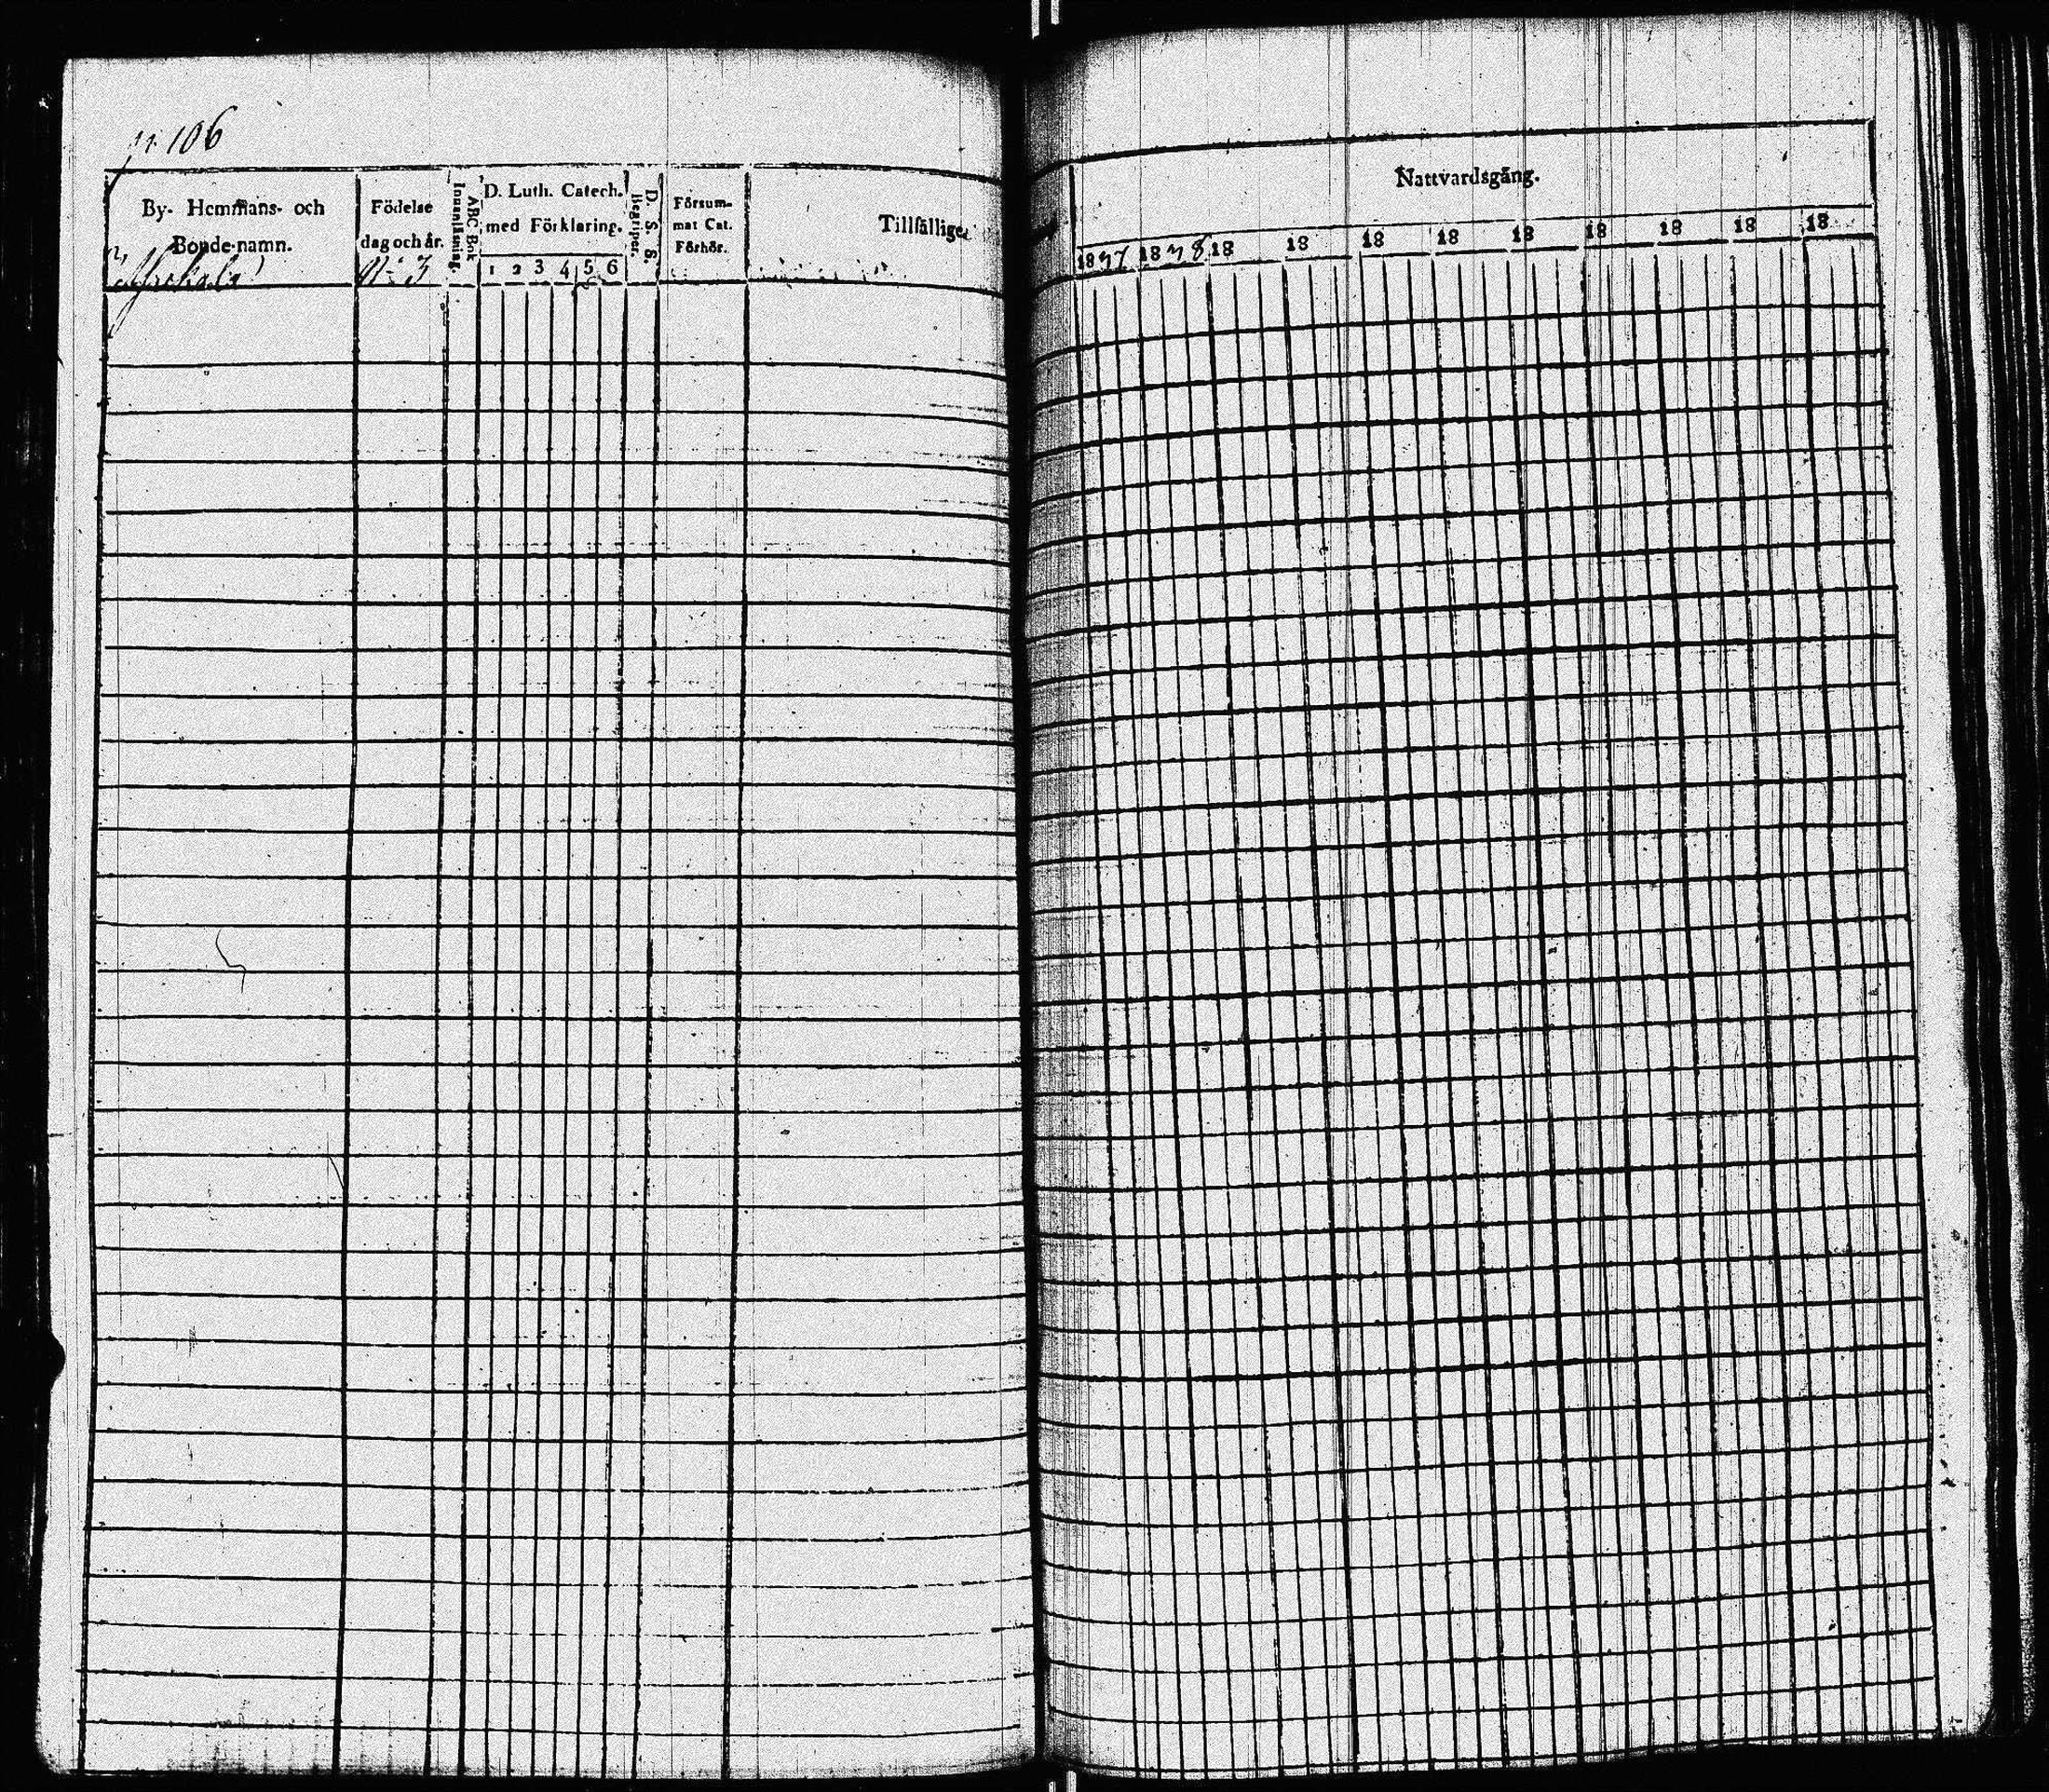 p. 106
By- Hemmans- och
Bonde-namn.
Födelse
dag och år.
N:o 3
Innanläsning.
ABC Bok
D. Luth. Catech.
med Förklaring.
1 2 3 4 5 6
D. S. S.
Begriper.
Försum-
mat Cat.
Förhör.
Tillfällige
Nattvardsgång.
1837 1838 18 18 18 18 18 18 18 18 18